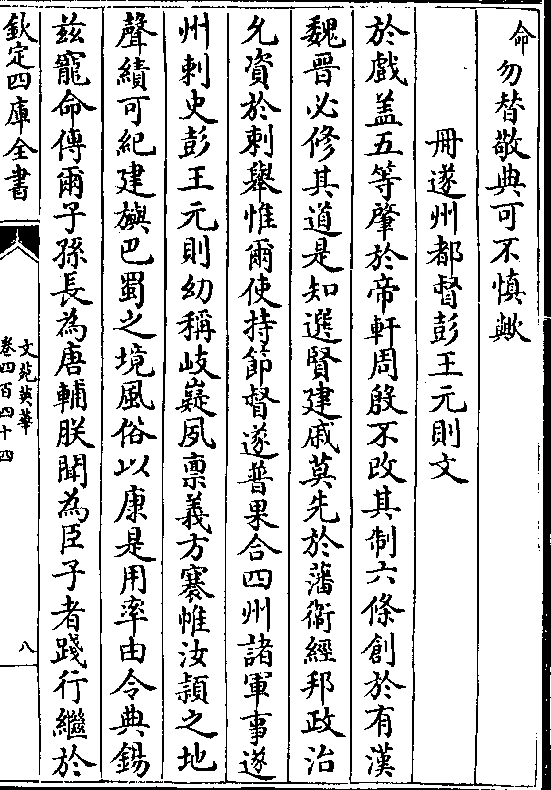 命勿替敬典可不慎歟
冊遂州都督彭王元則文
於戲盖五等肇於帝軒周殷不改其制六條創於有漢
魏晉必修其道是知選賢建戚莫先於藩衞經邦政治
允資於刺舉惟爾使持節督遂普果合四州諸軍事遂
州刺史彭王元則幼稱岐嶷夙禀義方褰帷汝潁之地
聲績可紀建旟巴蜀之境風俗以康是用率由令典錫
兹寵命傳爾子孫長為唐輔朕聞為臣子者踐行繼於
欽定四庫全書
文苑英華
卷四百四十四
八